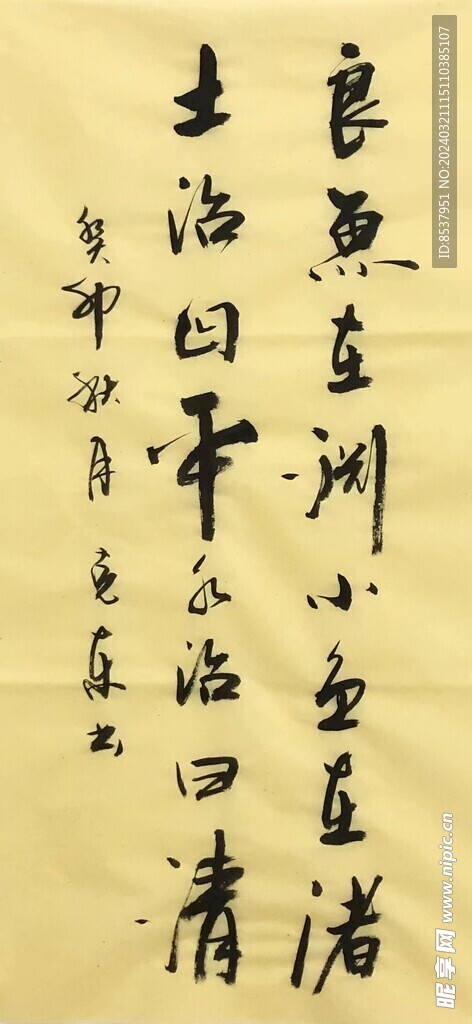 良鱼在渊小鱼在渚
土治曰平水治曰清
癸卯秋月克东书
ID:8537951 NO:20240321115110385107
昵享网 www.nipic.cn